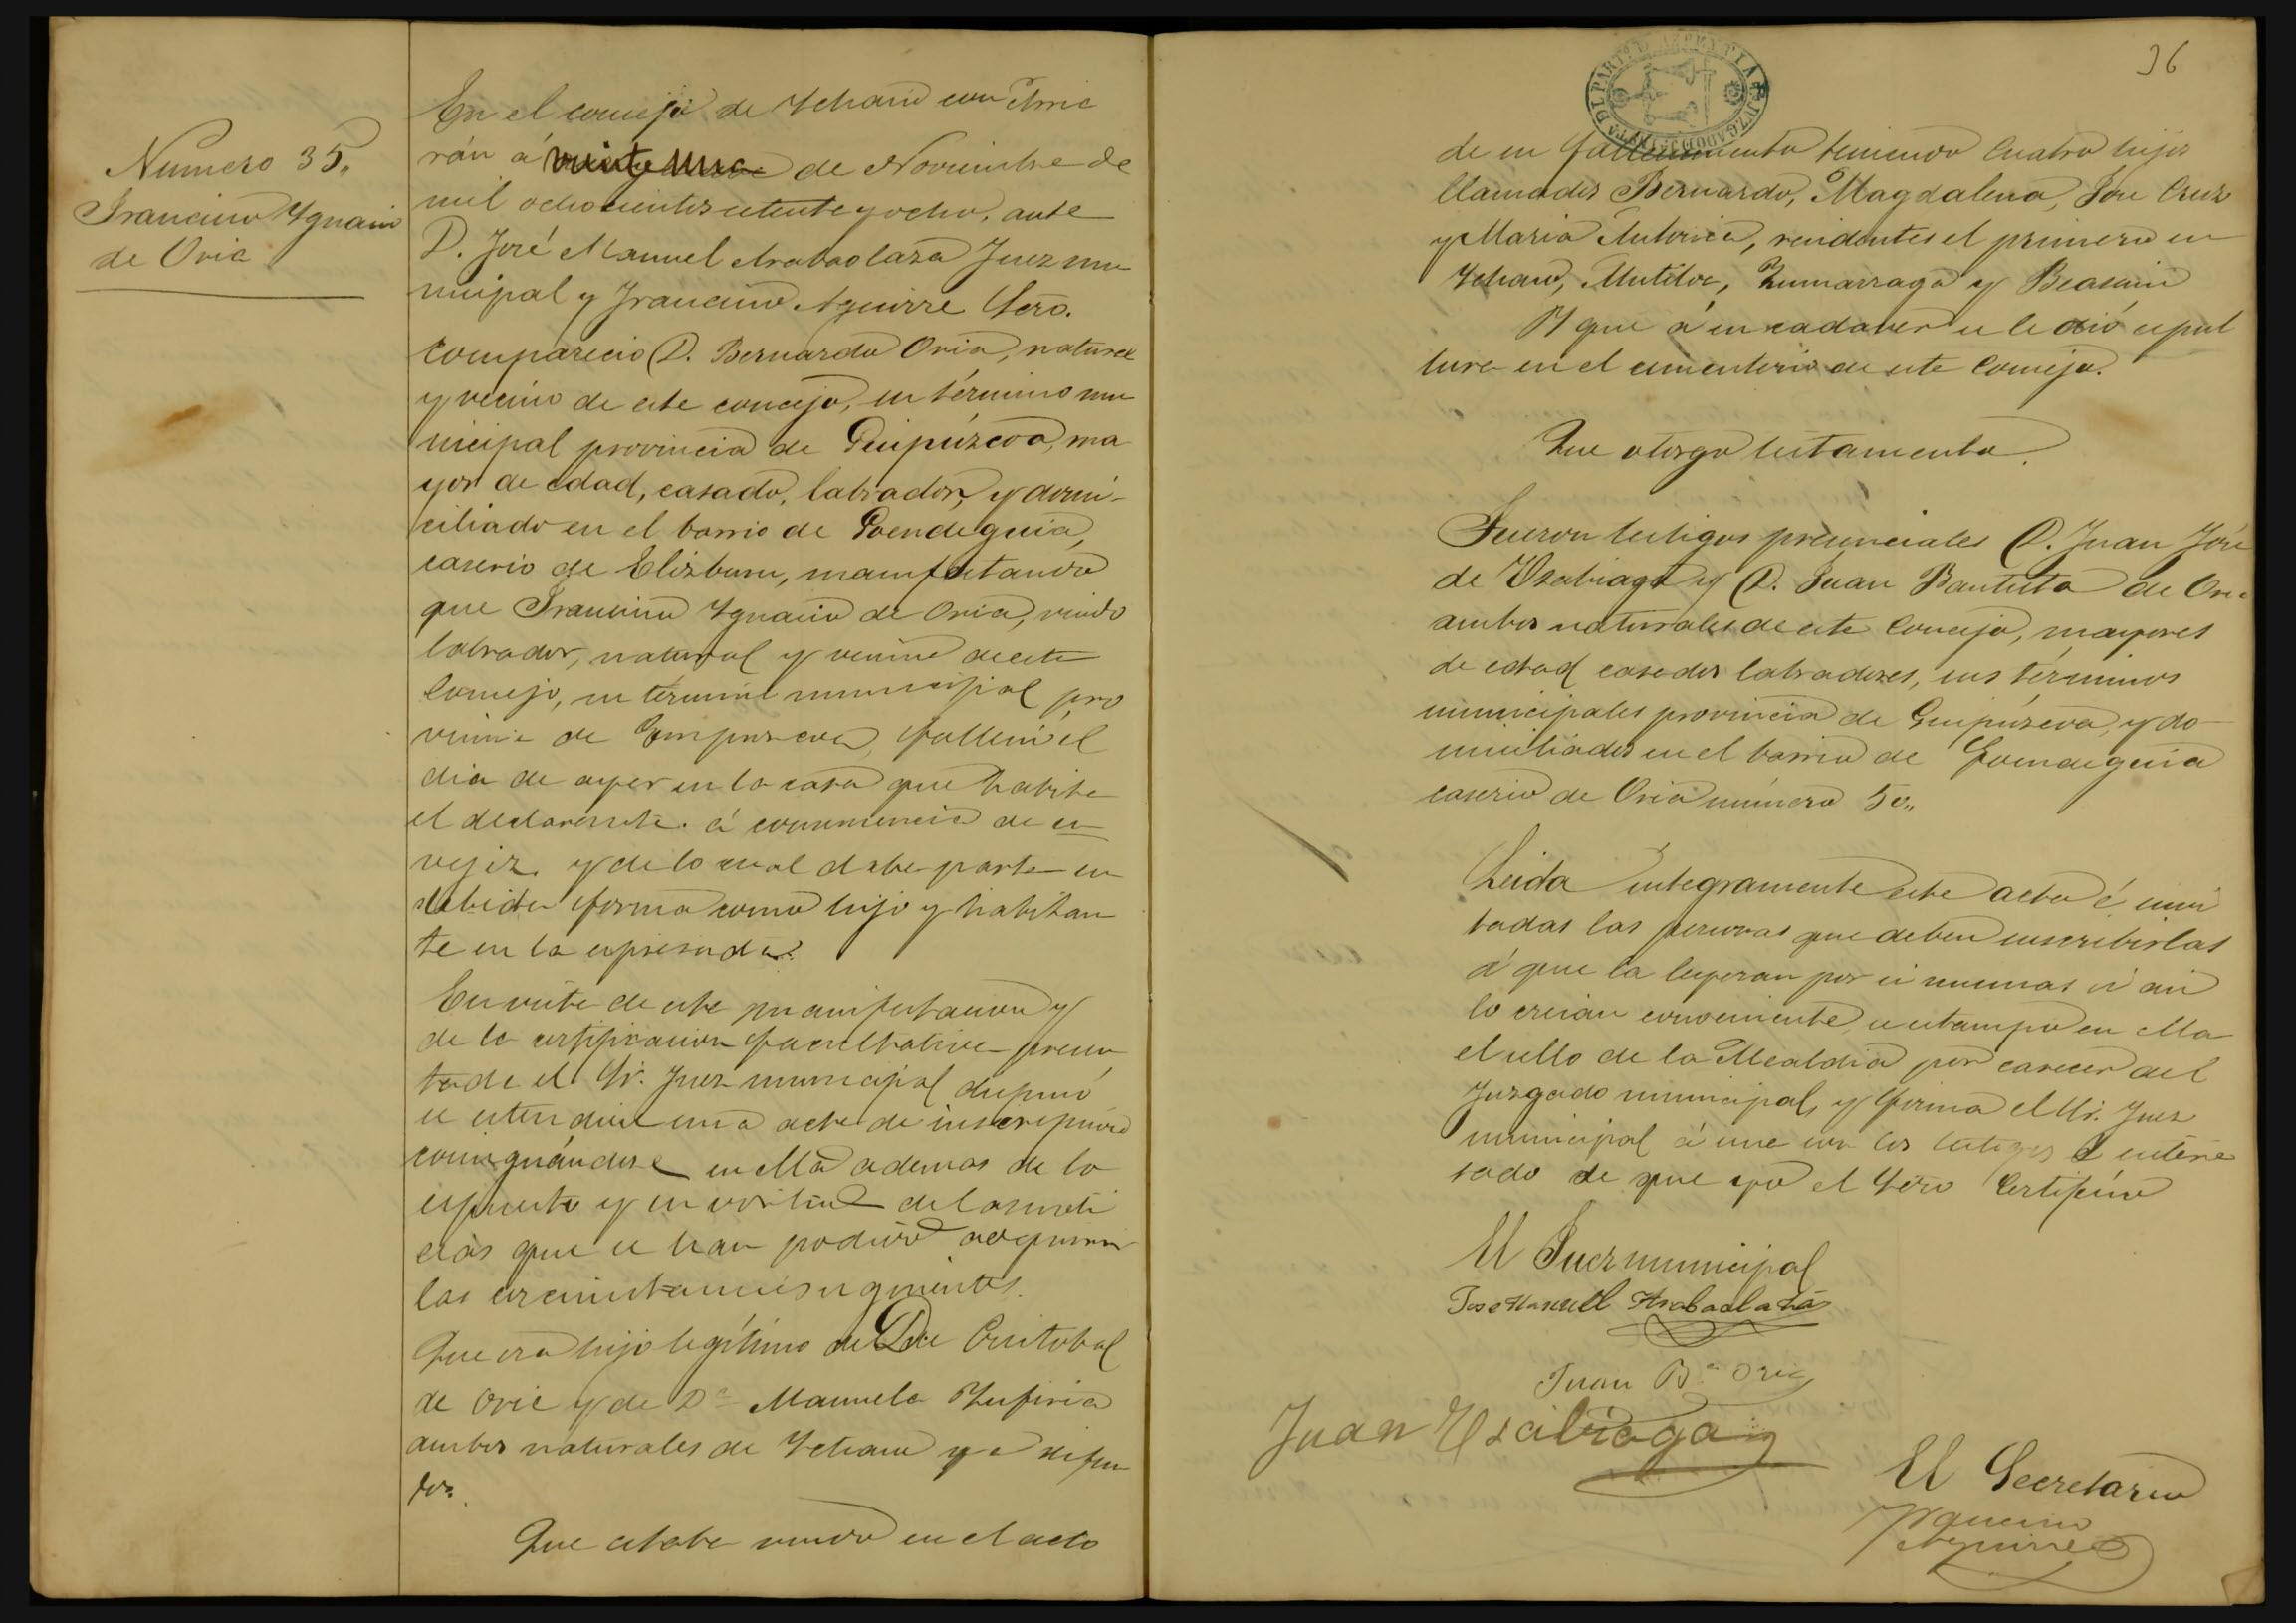 Numero 35.
Francisco Ygnacio
de Oria
En el concejo de Ychaso con Arria
rán á veinte una de Noviembre de
mil ochocientos setenta y ocho, ante
D. José Manuel Arabaolaza Juez mu
nicipal y Francisco Aguirre Srio.
comparecio D. Bernardo Oria, natural
y vecino de este concejo, su término mu
nicipal provincia de Guipúzcoa, ma
yor de edad, casado, labrador, y domi-
ciliado en el barrio de Goendeguia,
caserio de Elizburu, manifestando
que Francisco Ygnacio de Oria, viudo
labrador, natural y vecino de este
Concejo, su término municipal pro
vincia de Guipuzcoa, falleció el
dia de ayer en la casa que habita
el declarante á consecuencia de su
vejez. y de lo cual daba parte en
debida forma como hijo y habitan
te en la espresada.
En vista de esta manifestacion y
de la certificacion facultativa presen
tada el Sr. Juez municipal dispuso
se estendiese una acta de inscripcion
consignándose en ella ademas de lo
espuesto y en virtud de las noti
cias que se han podido adquirir
las circunstancias siguientes.
Que era hijo legítimo de Don Cristobal
de Oria y de Dª Manuela Zufiria
ambos naturales de Ychaso ya difun
tos.
Que estaba viudo en el acto
36
DI PARTº D AZPEYTIA JUZGADO
de su fallecimiento teniendo cuatro hijos
llamados Bernardo, Magdalena, José Cruz
y Maria Antonia, residentes el primero en
Ychaso, Mutiloa, Zumarraga y Beasain
Y que á su cadaver se le dió sepul
tura en el cementerio de este Concejo.
Que otorgo testamento.
Fueron testigos presenciales D. Juan José
de Usabiaga y D. Juan Bautista de Oria
ambos naturales de este Concejo, mayores
de edad casados labradores, sus términos
municipales provincia de Guipúzcoa, y do
miciliados en el barrio de Goendeguia
caserio de Oria número 50.,
Leida integramente esta acta é invi
tadas las personas que deben suscribirlas
á que la leyeran por si mismas si asi
lo creian conveniente se estampó en ella
el sello de la Alcaldia por carecer del
Juzgado municipal, y firma el Sr. Juez
municipal á una con los testigos é intere
sado de que yo el Srio Certifico
El Juez municipal
Jose Manuel Arabaolaza
Juan Bª Oria
Juan Usabiaga
El Secretario
Francisco
Aguirre